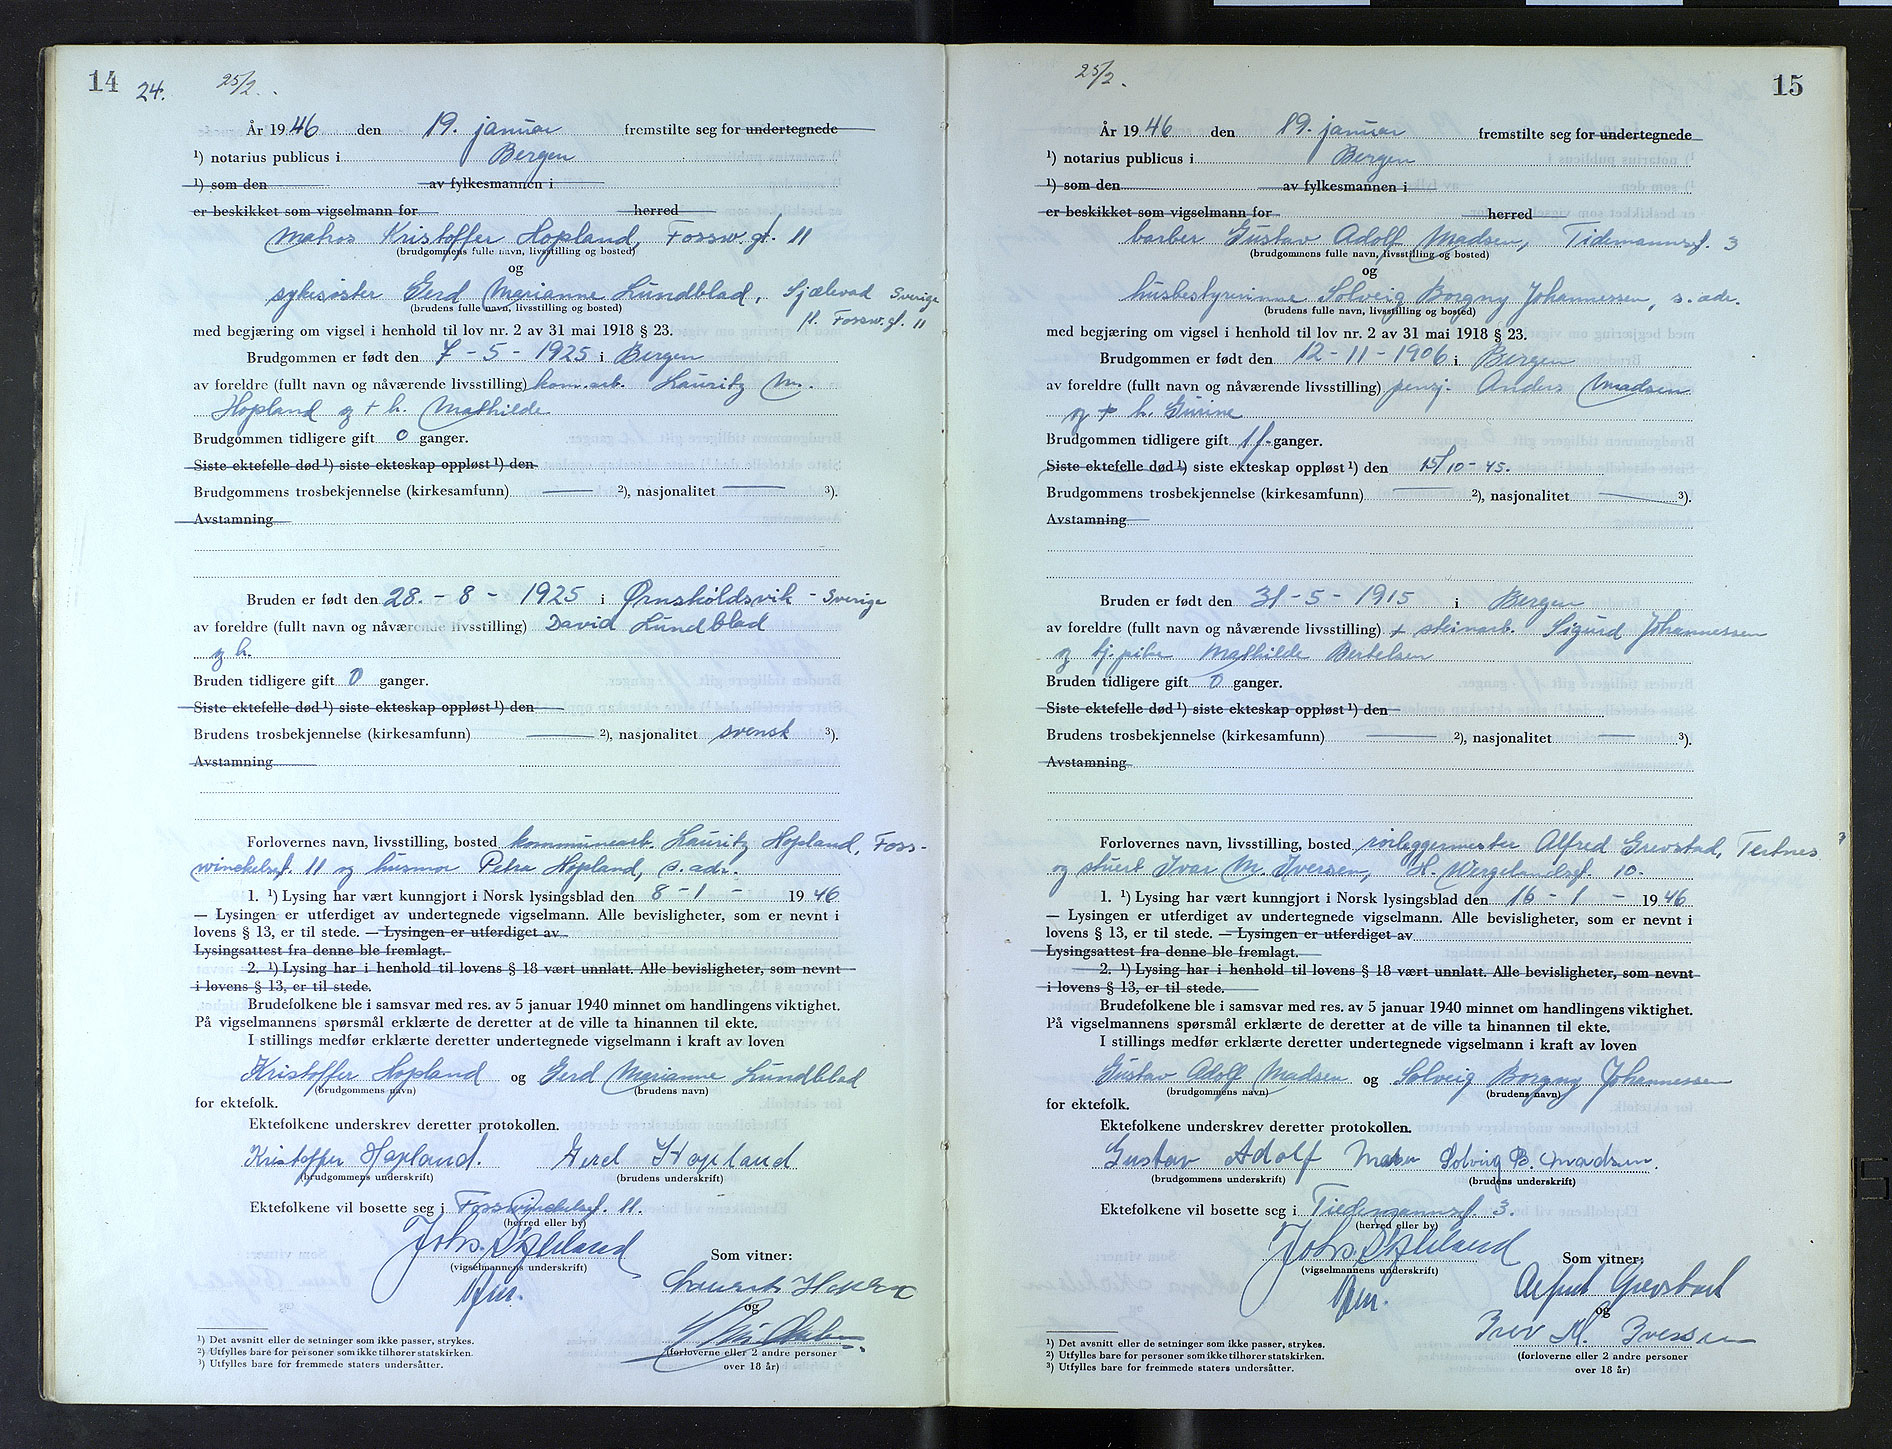 14 24. 25/2.
År 1946 den 19. januar fremstilte seg for undertegnede
¹) notarius publicus i Bergen
¹) som den av fylkesmannen i
er beskikket som vigselmann for herred
matros Kristoffer Hopland, Fossw.gt. 11
(brudgommens fulle navn, livsstilling og bosted)
og
sykesøster Gerd Marianne Lundblad, Själevad Sverige
(brudens fulle navn, livsstilling og bosted)
pt. Fossw.gt. 11
med begjæring om vigsel i henhold til lov nr. 2 av 31 mai 1918 § 23.
Brudgommen er født den 7 - 5 - 1925 i Bergen
av foreldre (fullt navn og nåværende livsstilling) kom.arb. Lauritz M.
Hopland og + h. Mathilde
Brudgommen tidligere gift 0 ganger.
Siste ektefelle død ¹) siste ekteskap oppløst ¹) den
Brudgommens trosbekjennelse (kirkesamfunn) — ²), nasjonalitet — ³).
Avstamning
Bruden er født den 28. - 8 - 1925 i Ørnskøldsvik - Sverige
av foreldre (fullt navn og nåværende livsstilling) David Lundblad
og h.
Bruden tidligere gift 0 ganger.
Siste ektefelle død ¹) siste ekteskap oppløst ¹) den
Brudens trosbekjennelse (kirkesamfunn) — ²), nasjonalitet svensk ³).
Avstamning
Forlovernes navn, livsstilling, bosted kommunearb. Lauritz Hopland, Foss-
winckelsgt. 11 og husmor Petra Hopland, s. adr.
1. ¹) Lysing har vært kunngjort i Norsk lysingsblad den 8 - 1 - 1946
— Lysingen er utferdiget av undertegnede vigselmann. Alle bevisligheter, som er nevnt i
lovens § 13, er til stede. — Lysingen er utferdiget av
Lysingsattest fra denne ble fremlagt.
2. ¹) Lysing har i henhold til lovens § 18 vært unnlatt. Alle bevisligheter, som nevnt
i lovens § 13, er til stede.
Brudefolkene ble i samsvar med res. av 5 januar 1940 minnet om handlingens viktighet.
På vigselmannens spørsmål erklærte de deretter at de ville ta hinannen til ekte.
I stillings medfør erklærte deretter undertegnede vigselmann i kraft av loven
Kristoffer Hopland og Gerd Marianne Lundblad
(brudgommens navn) (brudens navn)
for ektefolk.
Ektefolkene underskrev deretter protokollen.
Kristoffer Hopland. Gerd Hopland
(brudgommens underskrift) (brudens underskrift)
Ektefolkene vil bosette seg i Fosswinckelsgt. 11.
(herred eller by)
Johs.
(vigselmannens underskrift)
Som vitner:
og
(forloverne eller 2 andre personer
over 18 år)
¹) Det avsnitt eller de setninger som ikke passer, strykes.
²) Utfylles bare for personer som ikke tilhører statskirken.
³) Utfylles bare for fremmede staters undersåtter.
25/2. 15
År 1946 den 19. januar fremstilte seg for undertegnede
¹) notarius publicus i Bergen
¹) som den av fylkesmannen i
er beskikket som vigselmann for herred
barber Gustav Adolf Madsen, Tidemannsgt. 3
(brudgommens fulle navn, livsstilling og bosted)
og
husbestyrerinne Solveig Borgny Johannessen, s. adr.
(brudens fulle navn, livsstilling og bosted)
med begjæring om vigsel i henhold til lov nr. 2 av 31 mai 1918 § 23.
Brudgommen er født den 12 - 11 - 1906 i Bergen
av foreldre (fullt navn og nåværende livsstilling) pensj. Anders Madsen
og + h. Gurine
Brudgommen tidligere gift 1 ganger.
Siste ektefelle død ¹) siste ekteskap oppløst ¹) den 15/10 - 45.
Brudgommens trosbekjennelse (kirkesamfunn) — ²), nasjonalitet — ³).
Avstamning
Bruden er født den 31 - 5 - 1915 i Bergen
av foreldre (fullt navn og nåværende livsstilling) + steinarb. Sigurd Johannessen
og tj.pike Mathilde Bertelsen
Bruden tidligere gift 0 ganger.
Siste ektefelle død ¹) siste ekteskap oppløst ¹) den
Brudens trosbekjennelse (kirkesamfunn) — ²), nasjonalitet — ³).
Avstamning
Forlovernes navn, livsstilling, bosted rørleggermester Alfred Grevstad, Tertnes
og stuert Ivar M. Iversen, H. Wergelandsgt. 10.
1. ¹) Lysing har vært kunngjort i Norsk lysingsblad den 16 - 1 - 1946
— Lysingen er utferdiget av undertegnede vigselmann. Alle bevisligheter, som er nevnt i
lovens § 13, er til stede. — Lysingen er utferdiget av
Lysingsattest fra denne ble fremlagt.
2. ¹) Lysing har i henhold til lovens § 18 vært unnlatt. Alle bevisligheter, som nevnt
i lovens § 13, er til stede.
Brudefolkene ble i samsvar med res. av 5 januar 1940 minnet om handlingens viktighet.
På vigselmannens spørsmål erklærte de deretter at de ville ta hinannen til ekte.
I stillings medfør erklærte deretter undertegnede vigselmann i kraft av loven
Gustav Adolf Madsen og Solveig Borgny Johannessen
(brudgommens navn) (brudens navn)
for ektefolk.
Ektefolkene underskrev deretter protokollen.
Gustav Adolf Madsen Solveig B. Madsen.
(brudgommens underskrift) (brudens underskrift)
Ektefolkene vil bosette seg i Tidemannsgt. 3.
(herred eller by)
Johs.
(vigselmannens underskrift)
Som vitner:
Alfred Grevstad
og
Ivar M. Iversen
(forloverne eller 2 andre personer
over 18 år)
¹) Det avsnitt eller de setninger som ikke passer, strykes.
²) Utfylles bare for personer som ikke tilhører statskirken.
³) Utfylles bare for fremmede staters undersåtter.